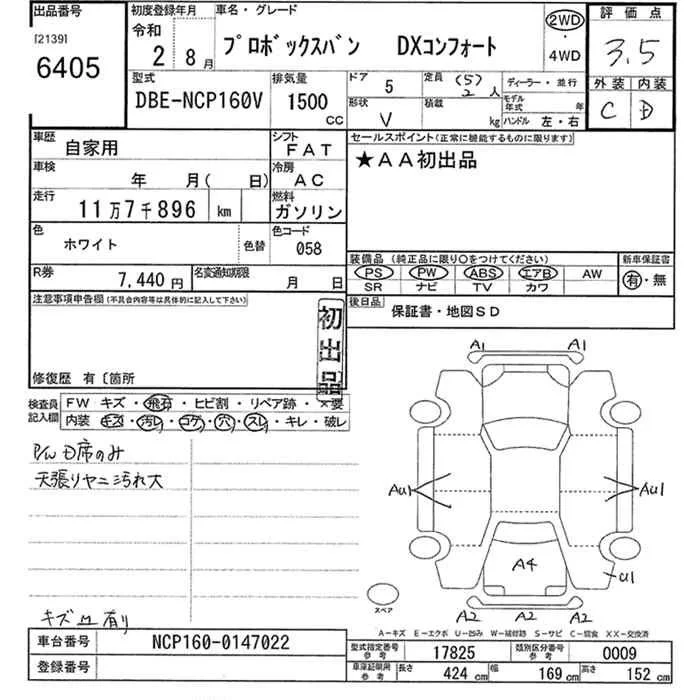 出品番号
[2139]
6405
初度登録年月
令和
2 8月
車名・グレード
プロボックスバン DXコンフォート
2WD
・
4WD
評価点
3.5
外装 内装
C D
型式
DBE-NCP160V
排気量
1500
CC
ドア
5
定員 (5)
2 人
形状
V
積載
kg
ディーラー・並行
モデル
年式 年
ハンドル 左・右
車歴
自家用
シフト
FAT
車検
年 月( 日)
冷房
AC
走行
11万7千896 km
燃料
ガソリン
色
ホワイト
色替
色コード
058
R券
7,440円
名変通知期限
月 日
セールスポイント(正常に機能するものに限ります)
★AA初出品
装備品(純正品に限り○をつけてください)
PS PW ABS エアB AW
SR ナビ TV カワ
新車保証書
有・無
後日品
保証書・地図SD
注意事項申告欄(不具合内容等は具体的に記入して下さい)
初出品
修復歴 有〔箇所
検査員
記入欄
FW キズ・飛石・ヒビ割・リペア跡・×要
内装 キズ・汚レ・コゲ・穴・スレ・キレ・破レ
P/W D席のみ
天張りヤニ汚れ大
キズ 凹 有り
A1 A1
AU1 AU1
A4
U1
A2 A2 A2
スペア
A-キズ E-エクボ U-凹み W-補修跡 S-サビ C-腐食 XX-交換済
車台番号
NCP160-0147022
登録番号
型式指定番号
参考
17825
類別区分番号
参考
0009
車庫証明用
参考
長さ
424 cm
幅
169 cm
高さ
152 cm